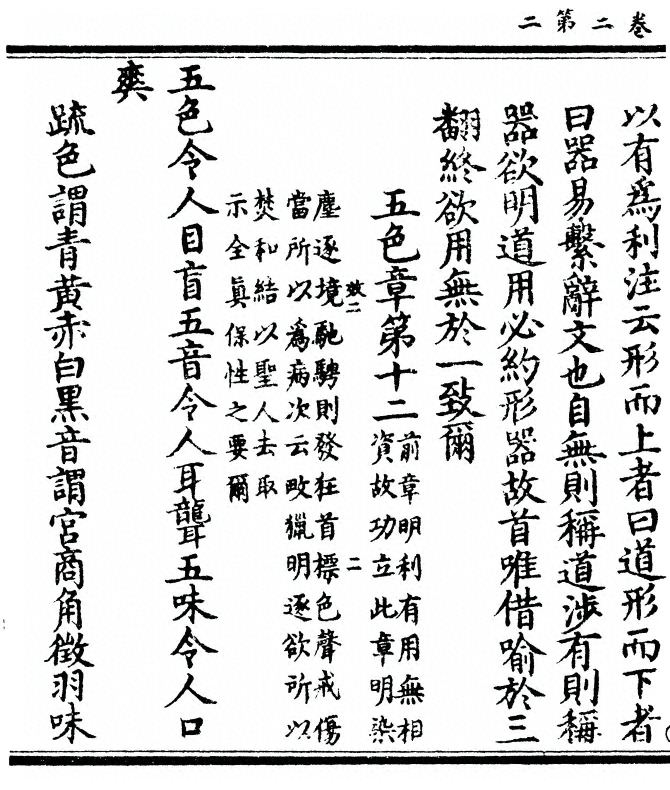 卷二第二
以有爲利注云形而上者曰道形而下者
曰器易繫辭文也自無則稱道涉有則稱
器欲明道用必約形器故首唯借喻於三
翻終欲用無於一致爾
五色章第十二
前章明利有用無相
資故功立此章明染
二
塵逐境馳騁則發狂首標色聲戒傷
當所以爲病次云畋獵明逐欲所以
焚和結以聖人去取
示全眞保性之要爾
五色令人目盲五音令人耳聾五味令人口
爽
疏色謂青黃赤白黑音謂宮商角徵羽味